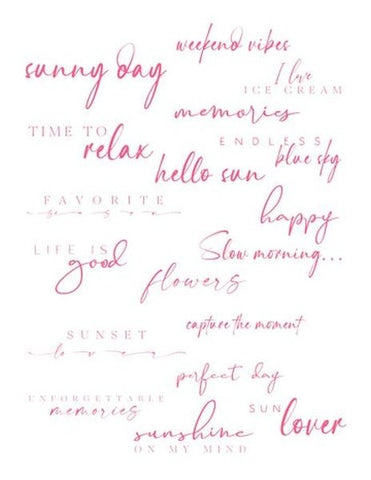 weekend vibes
sunny day
I love
ICE CREAM
memories
TIME TO
relax
ENDLESS
blue sky
hello sun
FAVORITE
season
happy
LIFE IS
good
Slow morning...
flowers
capture the moment
SUNSET
lover
perfect day
UNFORGETTABLE
memories
SUN
lover
sunshine
ON MY MIND